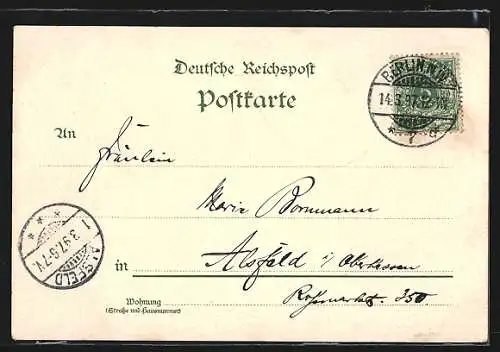 Deutsche Reichspost
Postkarte
BERLIN N.W.
14.3.97.12-1N.
* 7 d
An
Fräulein
Marie Bornmann
in Alsfeld i/ Oberhessen
Wohnung
(Straße und Hausnummer)
350
1
3.97.6-7N
ALSFELD